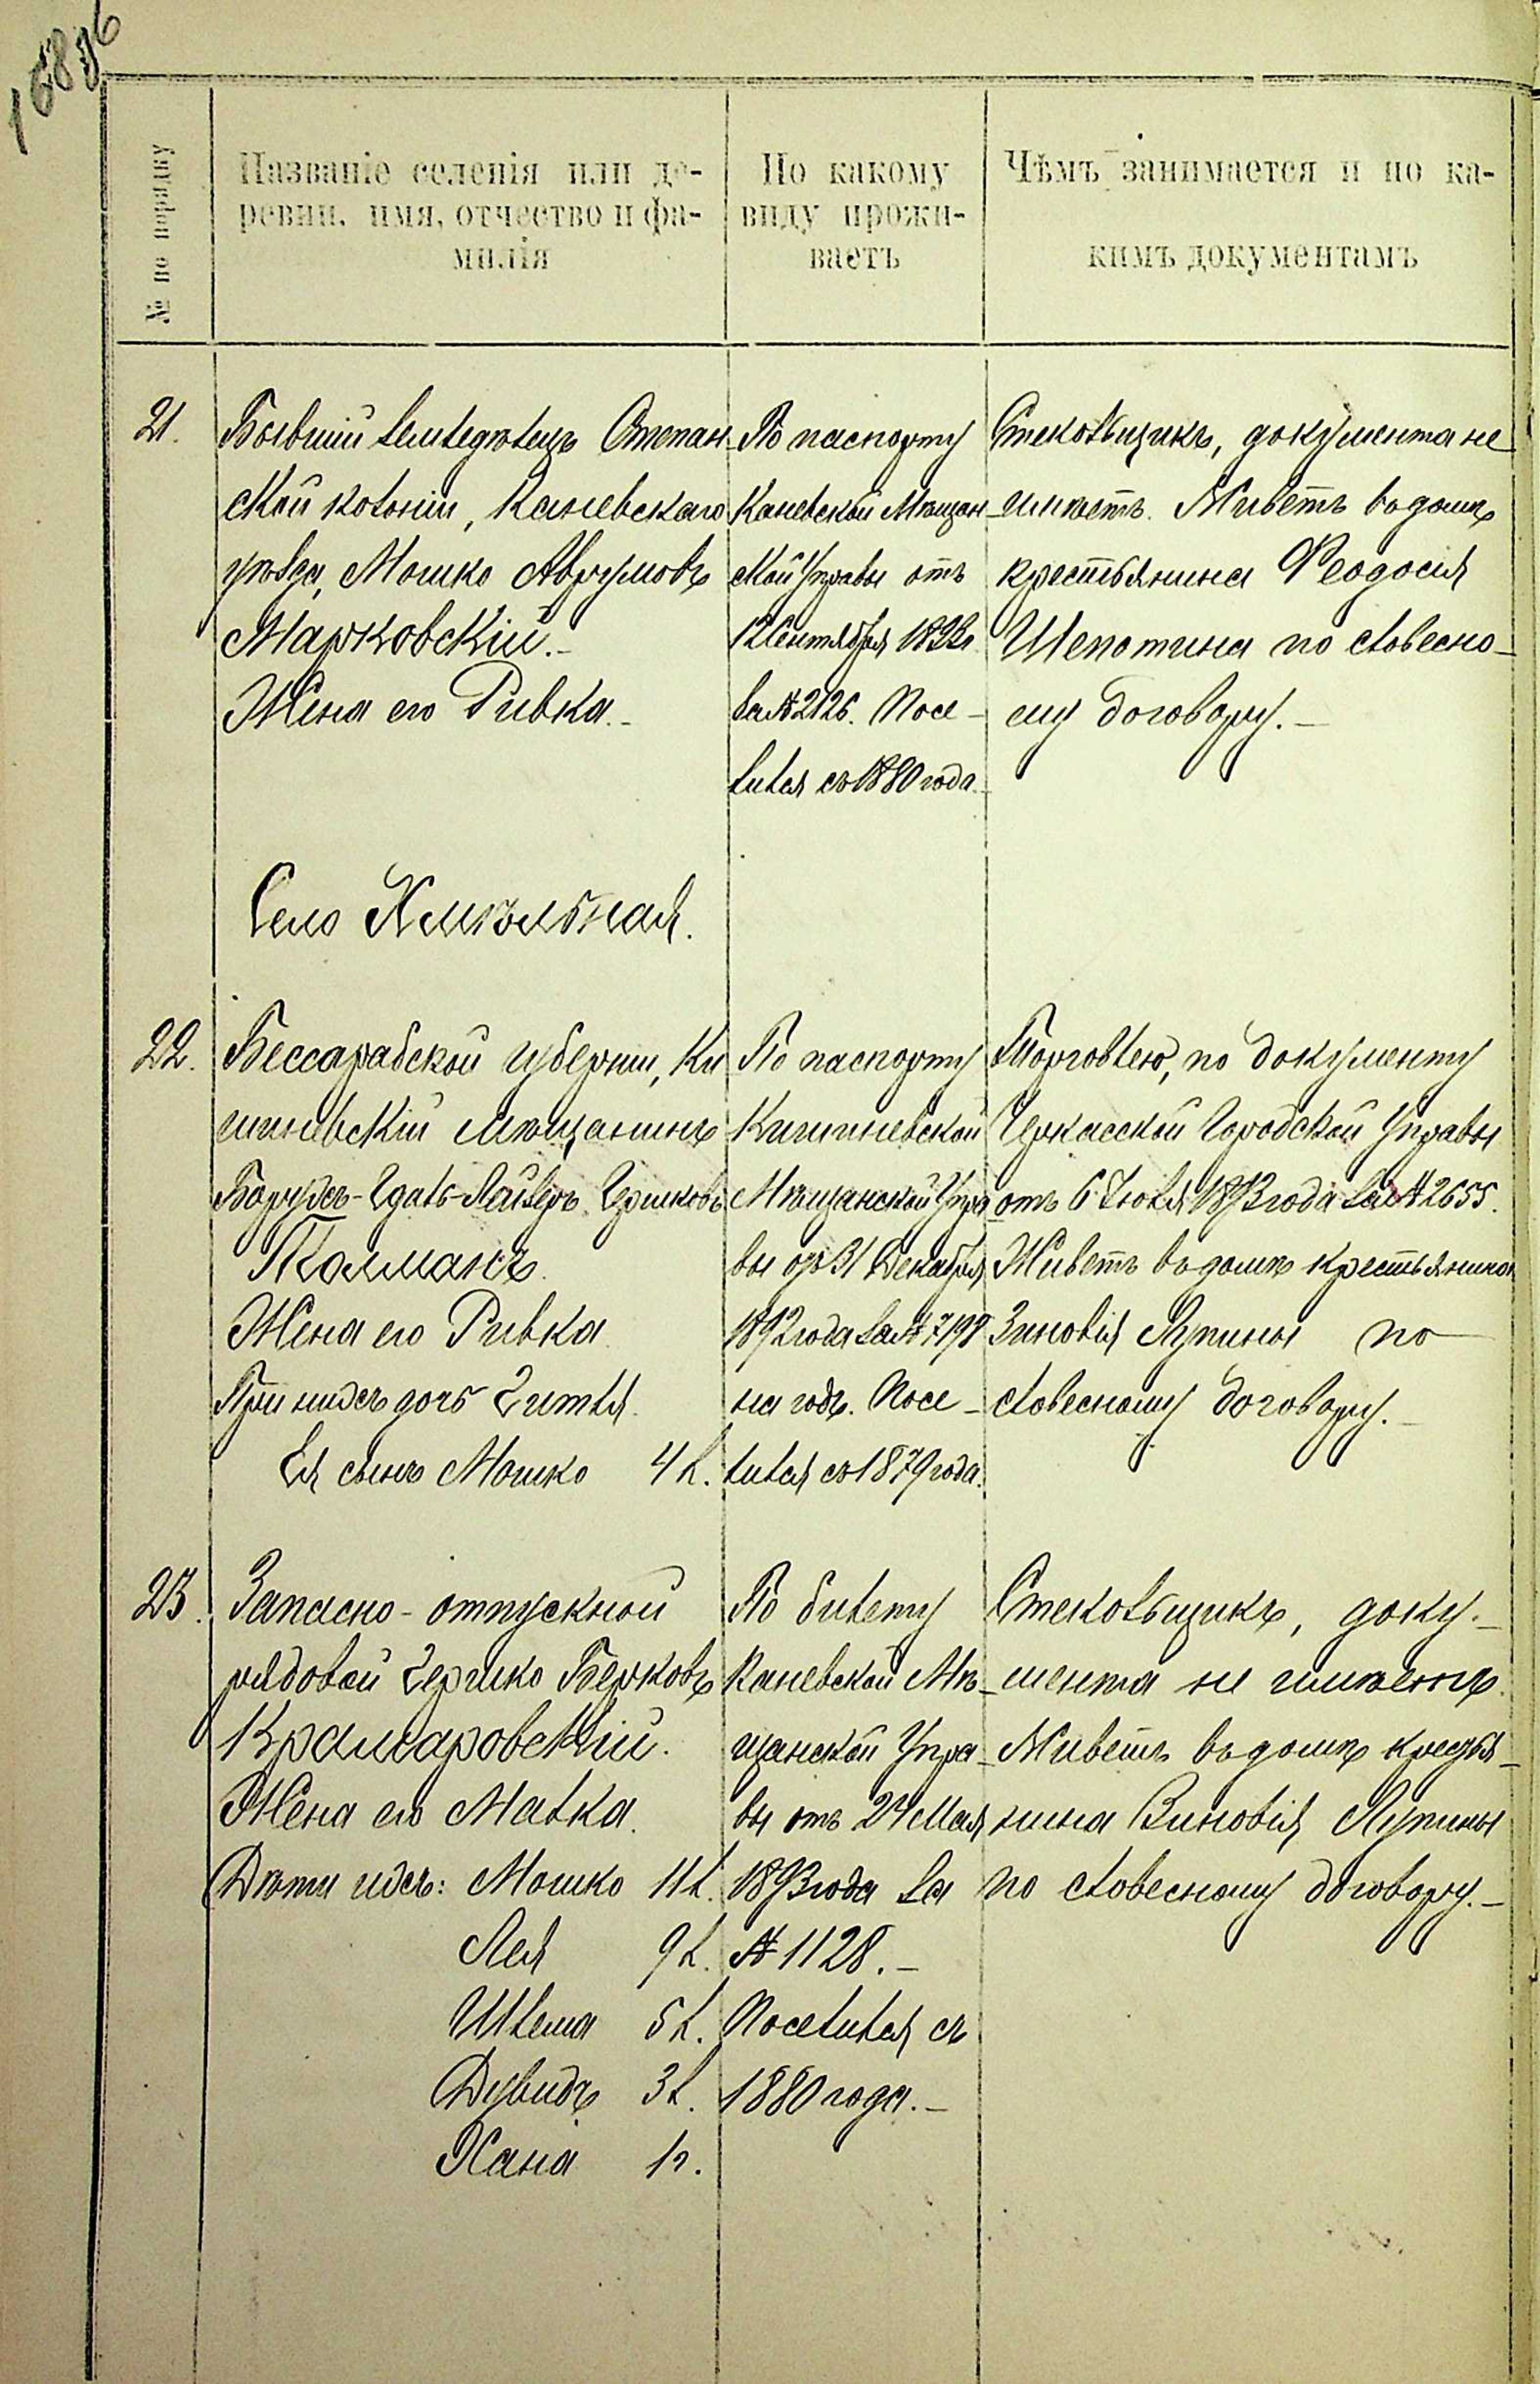 № по порядку
Названіе селенія или де-
ревни, имя, отчество и фа-
милія
По какому
виду прожи-
ваетъ
Чѣмъ занимается и по ка-
кимъ документамъ
21.
Бывшій земледѣлецъ Степан-
ской колоніи, Каневскаго
уѣзда, Мошко Аврумовъ
Марковскій.-
Жена его Ривка.-
По паспорту
Каневской Мѣщан-
ской Управы отъ
12 Сентября
за № 2126. Посе-
лился съ 1880 года.-
Стекольщикъ, документа не
имѣетъ. Живетъ въ домѣ
крестьянина Феодосія
Шепотина по словесно-
му договору.-
Село Хмѣльная.
22.
Бессарабской губерніи, Ки
шиневскій мѣщанинъ
Борухъ-Гдаль-Лейзеръ Гершковъ
Толмакъ.
Жена его Ривка.
При нихъ дочь Гитля.
Ея сынъ Мошко 4 л.
По паспорту
Кишиневской
Мѣщанской Упра-
вы отъ 31 Декабря
1892 года за № 7198
на годъ. Посе-
лился съ 1879 года.
Торговлею, по документу
Черкасской Городской Управы
отъ 6 Іюля 1893 года за № 2655.
Живетъ въ домѣ крестьянина
Зиновія Лупины по
словесному договору.-
23.
Запасно-отпускной
рядовой Гершко Берковъ
Крамаровскій.
Жена его Малка.
Дѣти ихъ: Мошко 11 л.
Лея 9 л.
Шлема 5 л.
Дувидъ 3 л.
Хана 1 г.
По билету
Каневской Мѣ-
щанской Упра-
вы отъ 24 Мая
1893 года за
№ 1128.-
Поселился съ
1880 года.-
Стекольщикъ, доку-
мента не имѣетъ.
Живетъ въ домѣ крестья-
нина Зиновія Лупины
по словесному договору.-